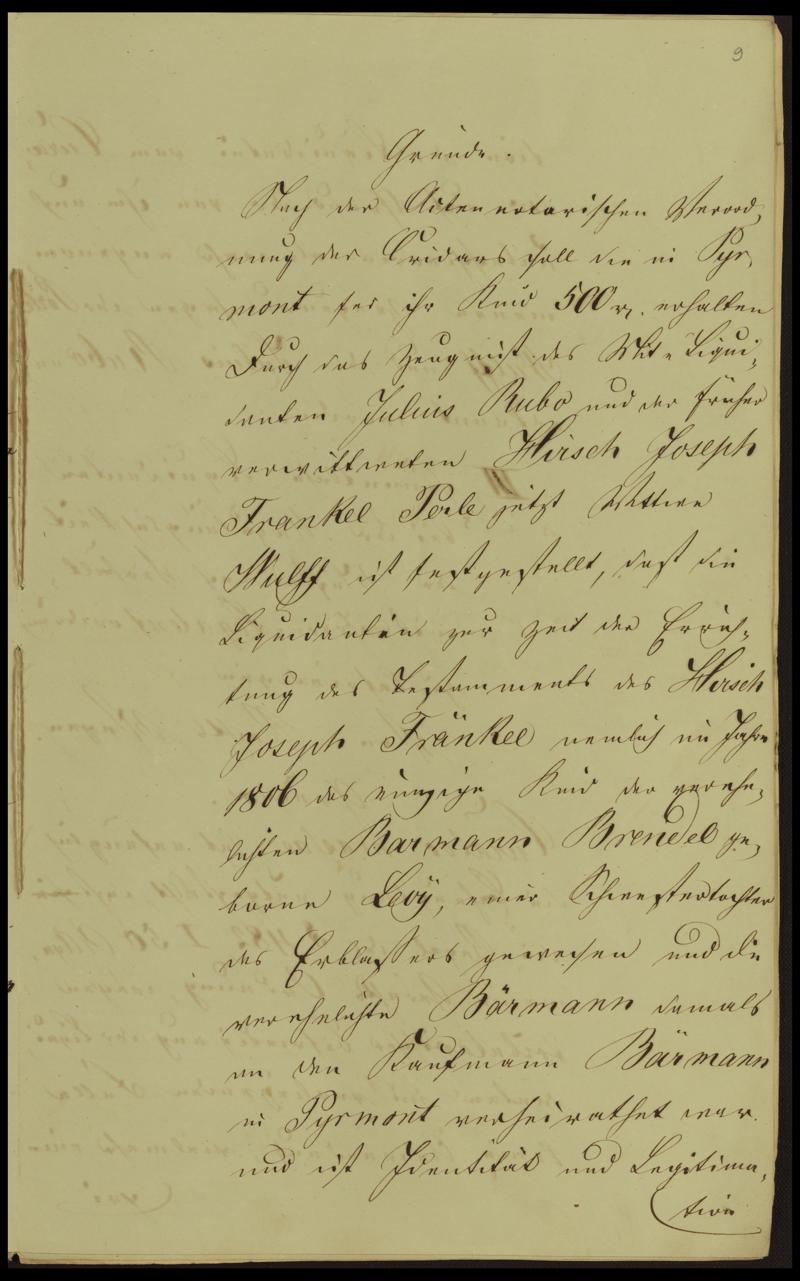 9
Gründe.
Nach der Acten notarischen Verord,
nung des Cridars soll die in Pyr,
mont für ihr Kind 500 r. erhalten
Durch das Zeugniß des Mit-Liqui,
danten Julius Rubo und der früher
verwittweten Hirsch Joseph
Frankel Perle jetzt Wittwe
Wulff ist festgestellt, daß die
Liquidantin zur Zeit der Errich-
tung des Testamments des Hirsch
Joseph Fränkel nemlich im Jahre
1806 das einzige Kind der verehe,
lichten Barmann Brendel ge,
borne Levÿ, einer Schwestertochter
des Erblassers gewesen und die
verehelichte Bärmann damals
an den Kaufmann Bärmann
in Pyrmont verheirathet war.
und ist Identität und Legitima,
tion